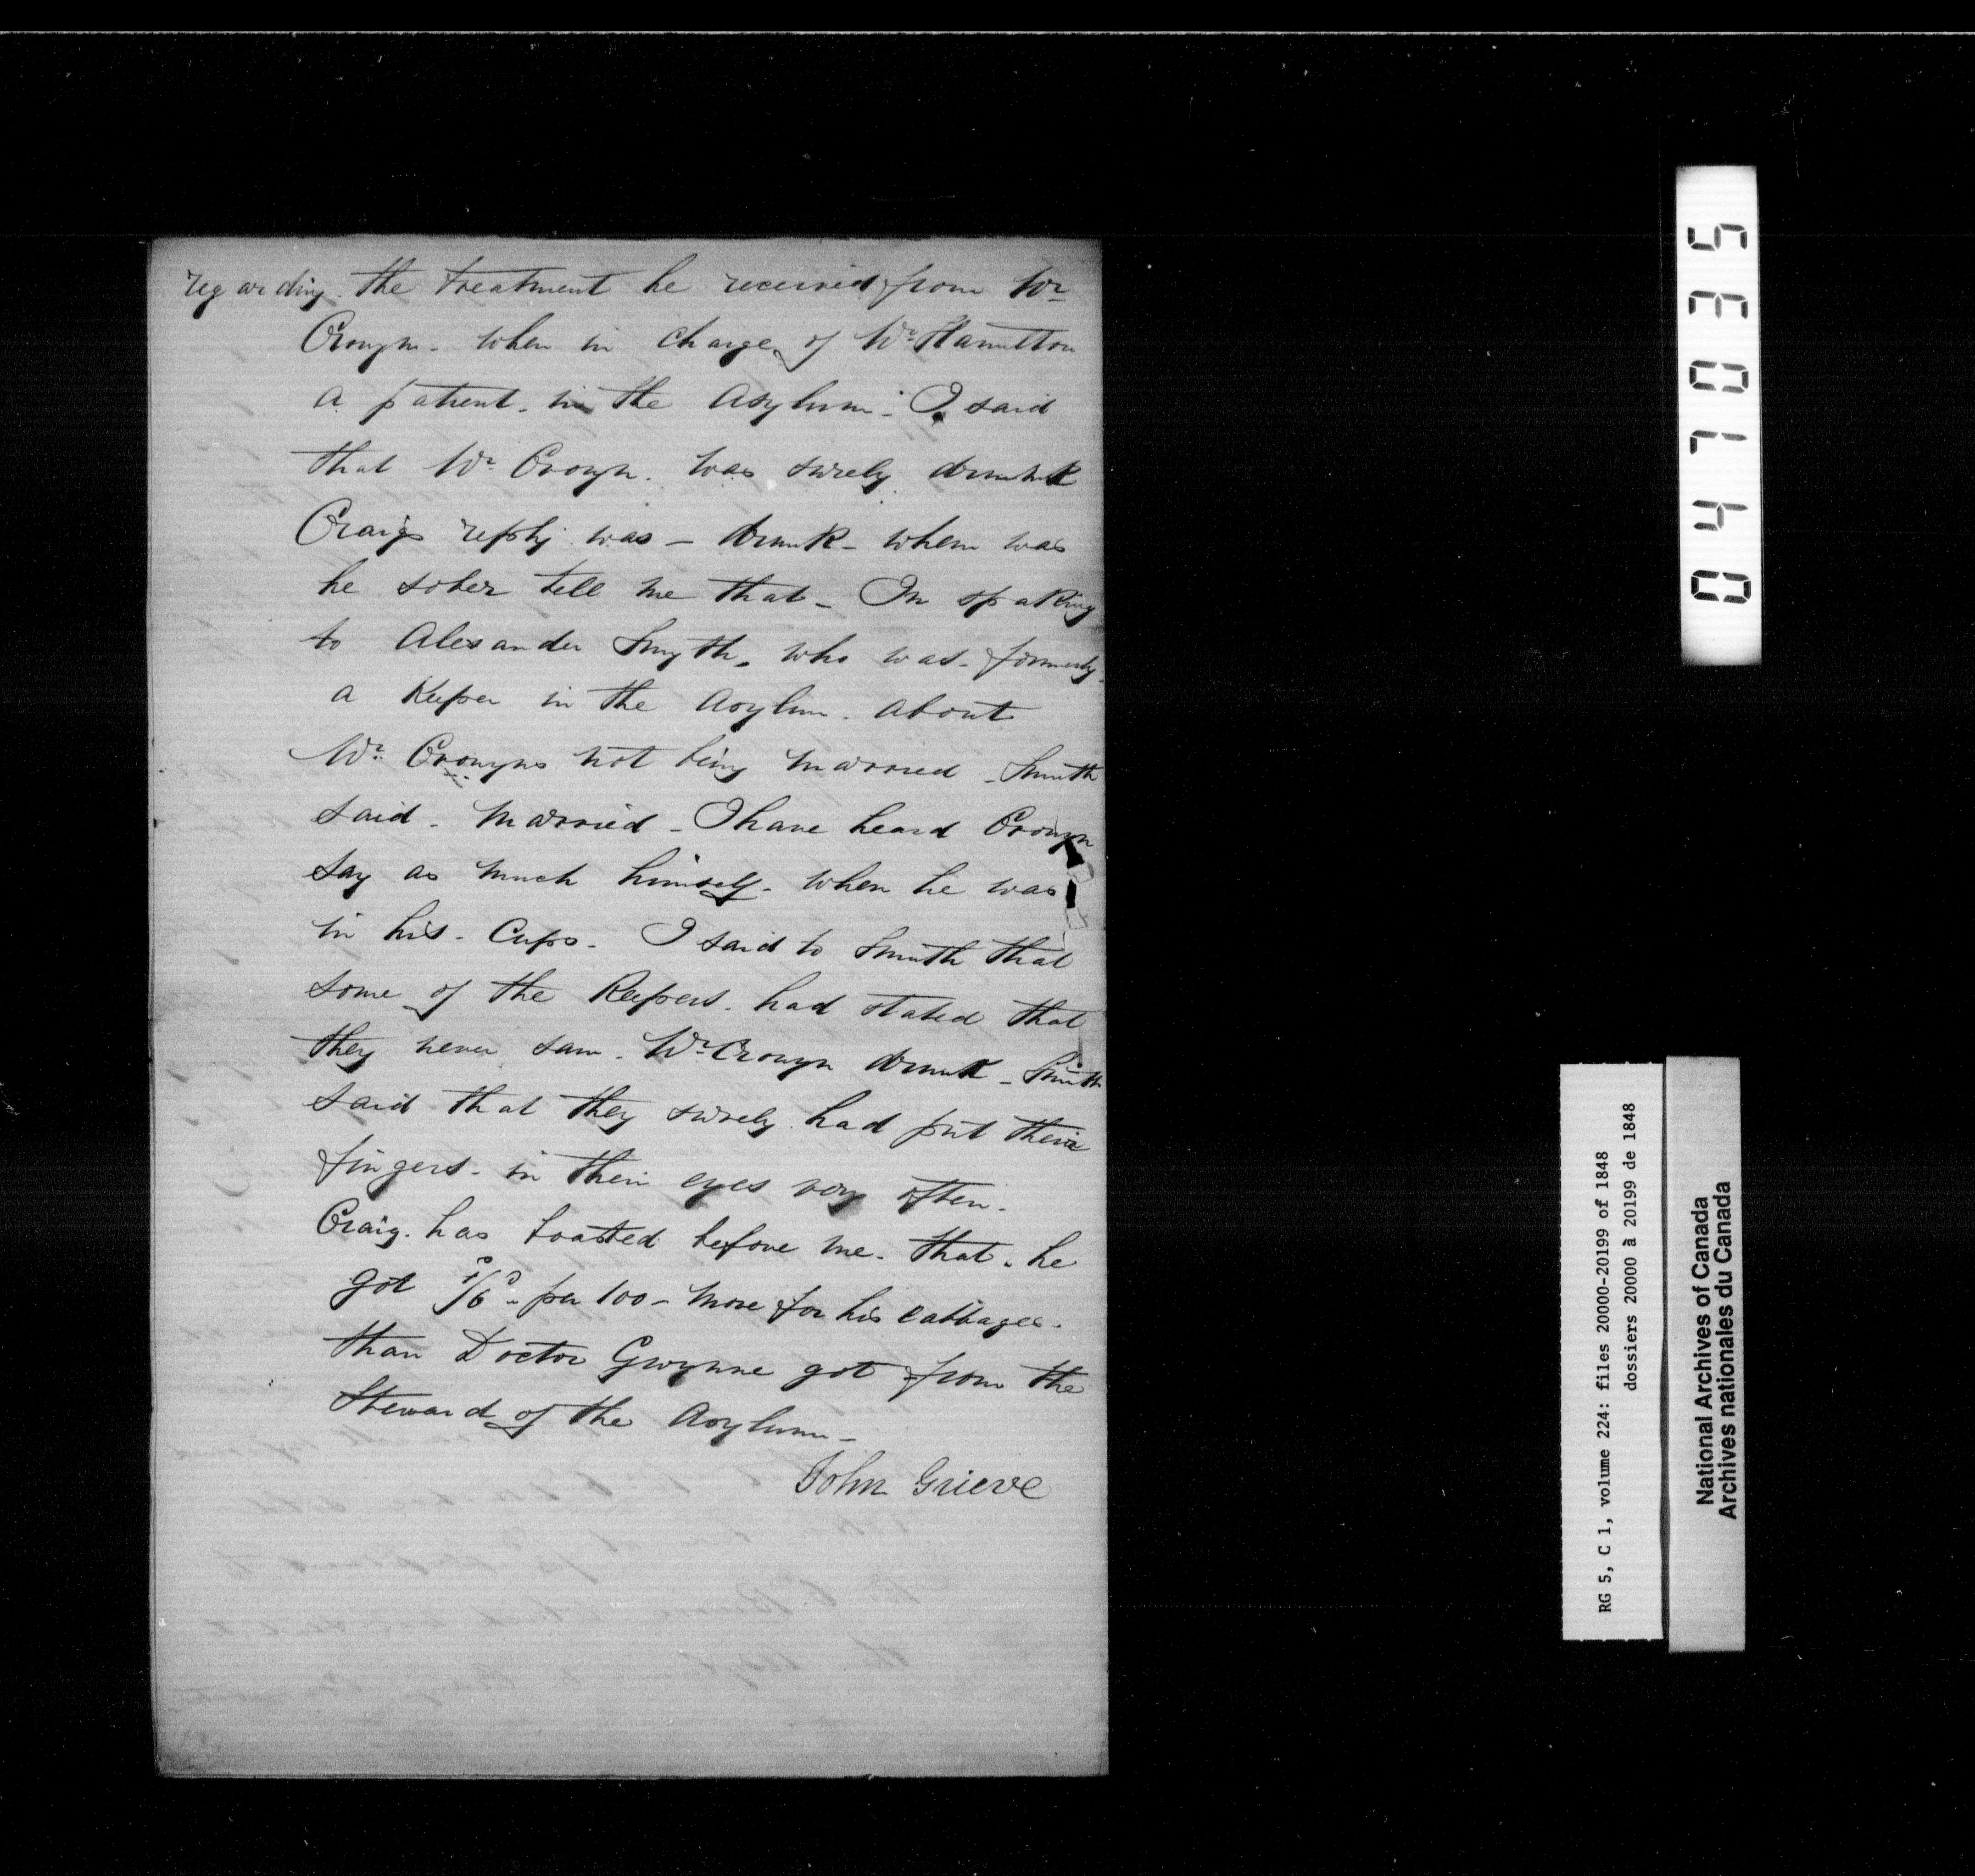 regarding. the treatment he received from Mr
Cronyn. when in charge of Mr Hamilton
a patient. in the Asylum. I said
that Mr Cronyn. was surely drunk
Craigs reply was — drunk — when was
he sober tell me that — In spaking
to Alexander Smyth. who was. formerly
a Keeper in the Asylum. about
Mr Cronyns not being married — Smith
said. married — I have heard Cronyn
say as much himself. when he was
in his. Cups. I said to Smith that
some of the Keepers. had stated that
they never saw. Mr Cronyn drunk — Smith
said that they surely had put their
fingers. in their eyes very often.
Craig. has boasted before me. that. he
got per 100 — more for his cabbages.
than Doctor Gwynne got from the
Steward of the Asylum —
John Grieve
047035
RG 5, C 1, volume 224: files 20000-20199 of 1848
dossiers 20000 à 20199 de 1848
National Archives of Canada
Archives nationales du Canada